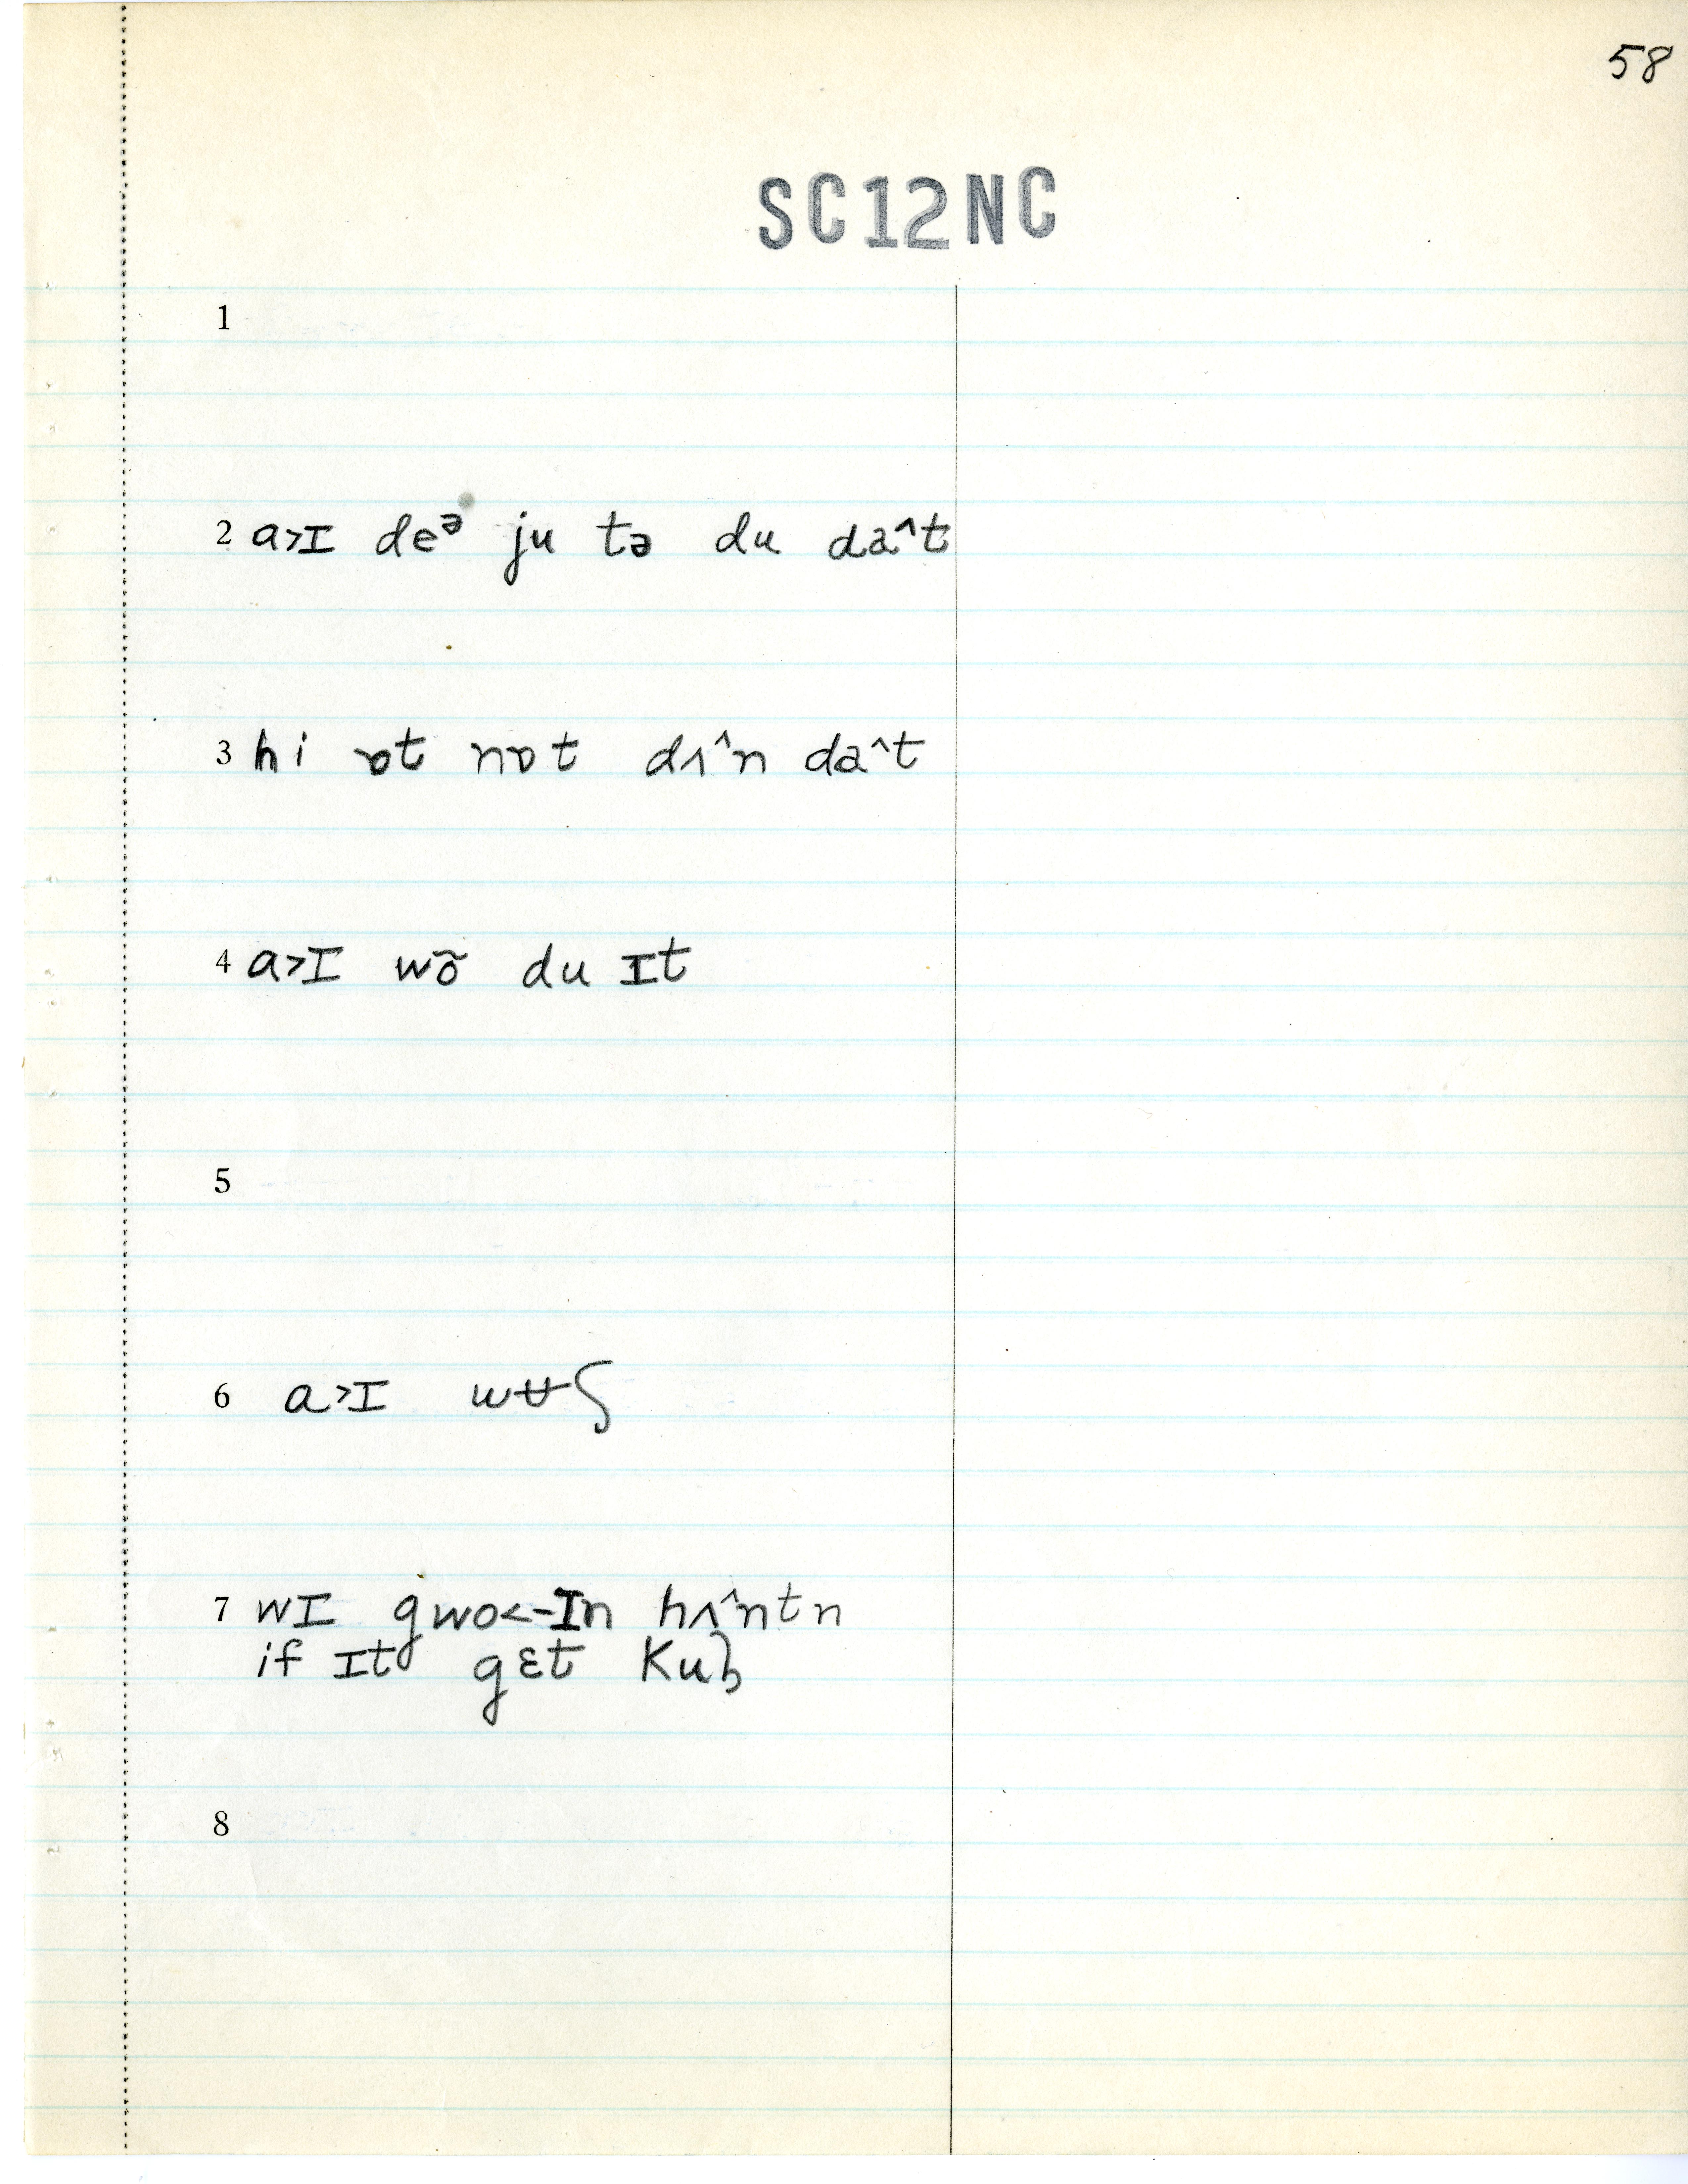 58
SC12NC
1
2 a>ɪ deᵊ ju tə du da^t
3 hi ɒt nɒt dʌ^n da^t
4 a>ɪ wõ du ɪt
5
6 a>ɪ wʉʃ
7 wɪ gwo<-ɪn hʌ^ntn
if ɪt gɛt kuɮ
8